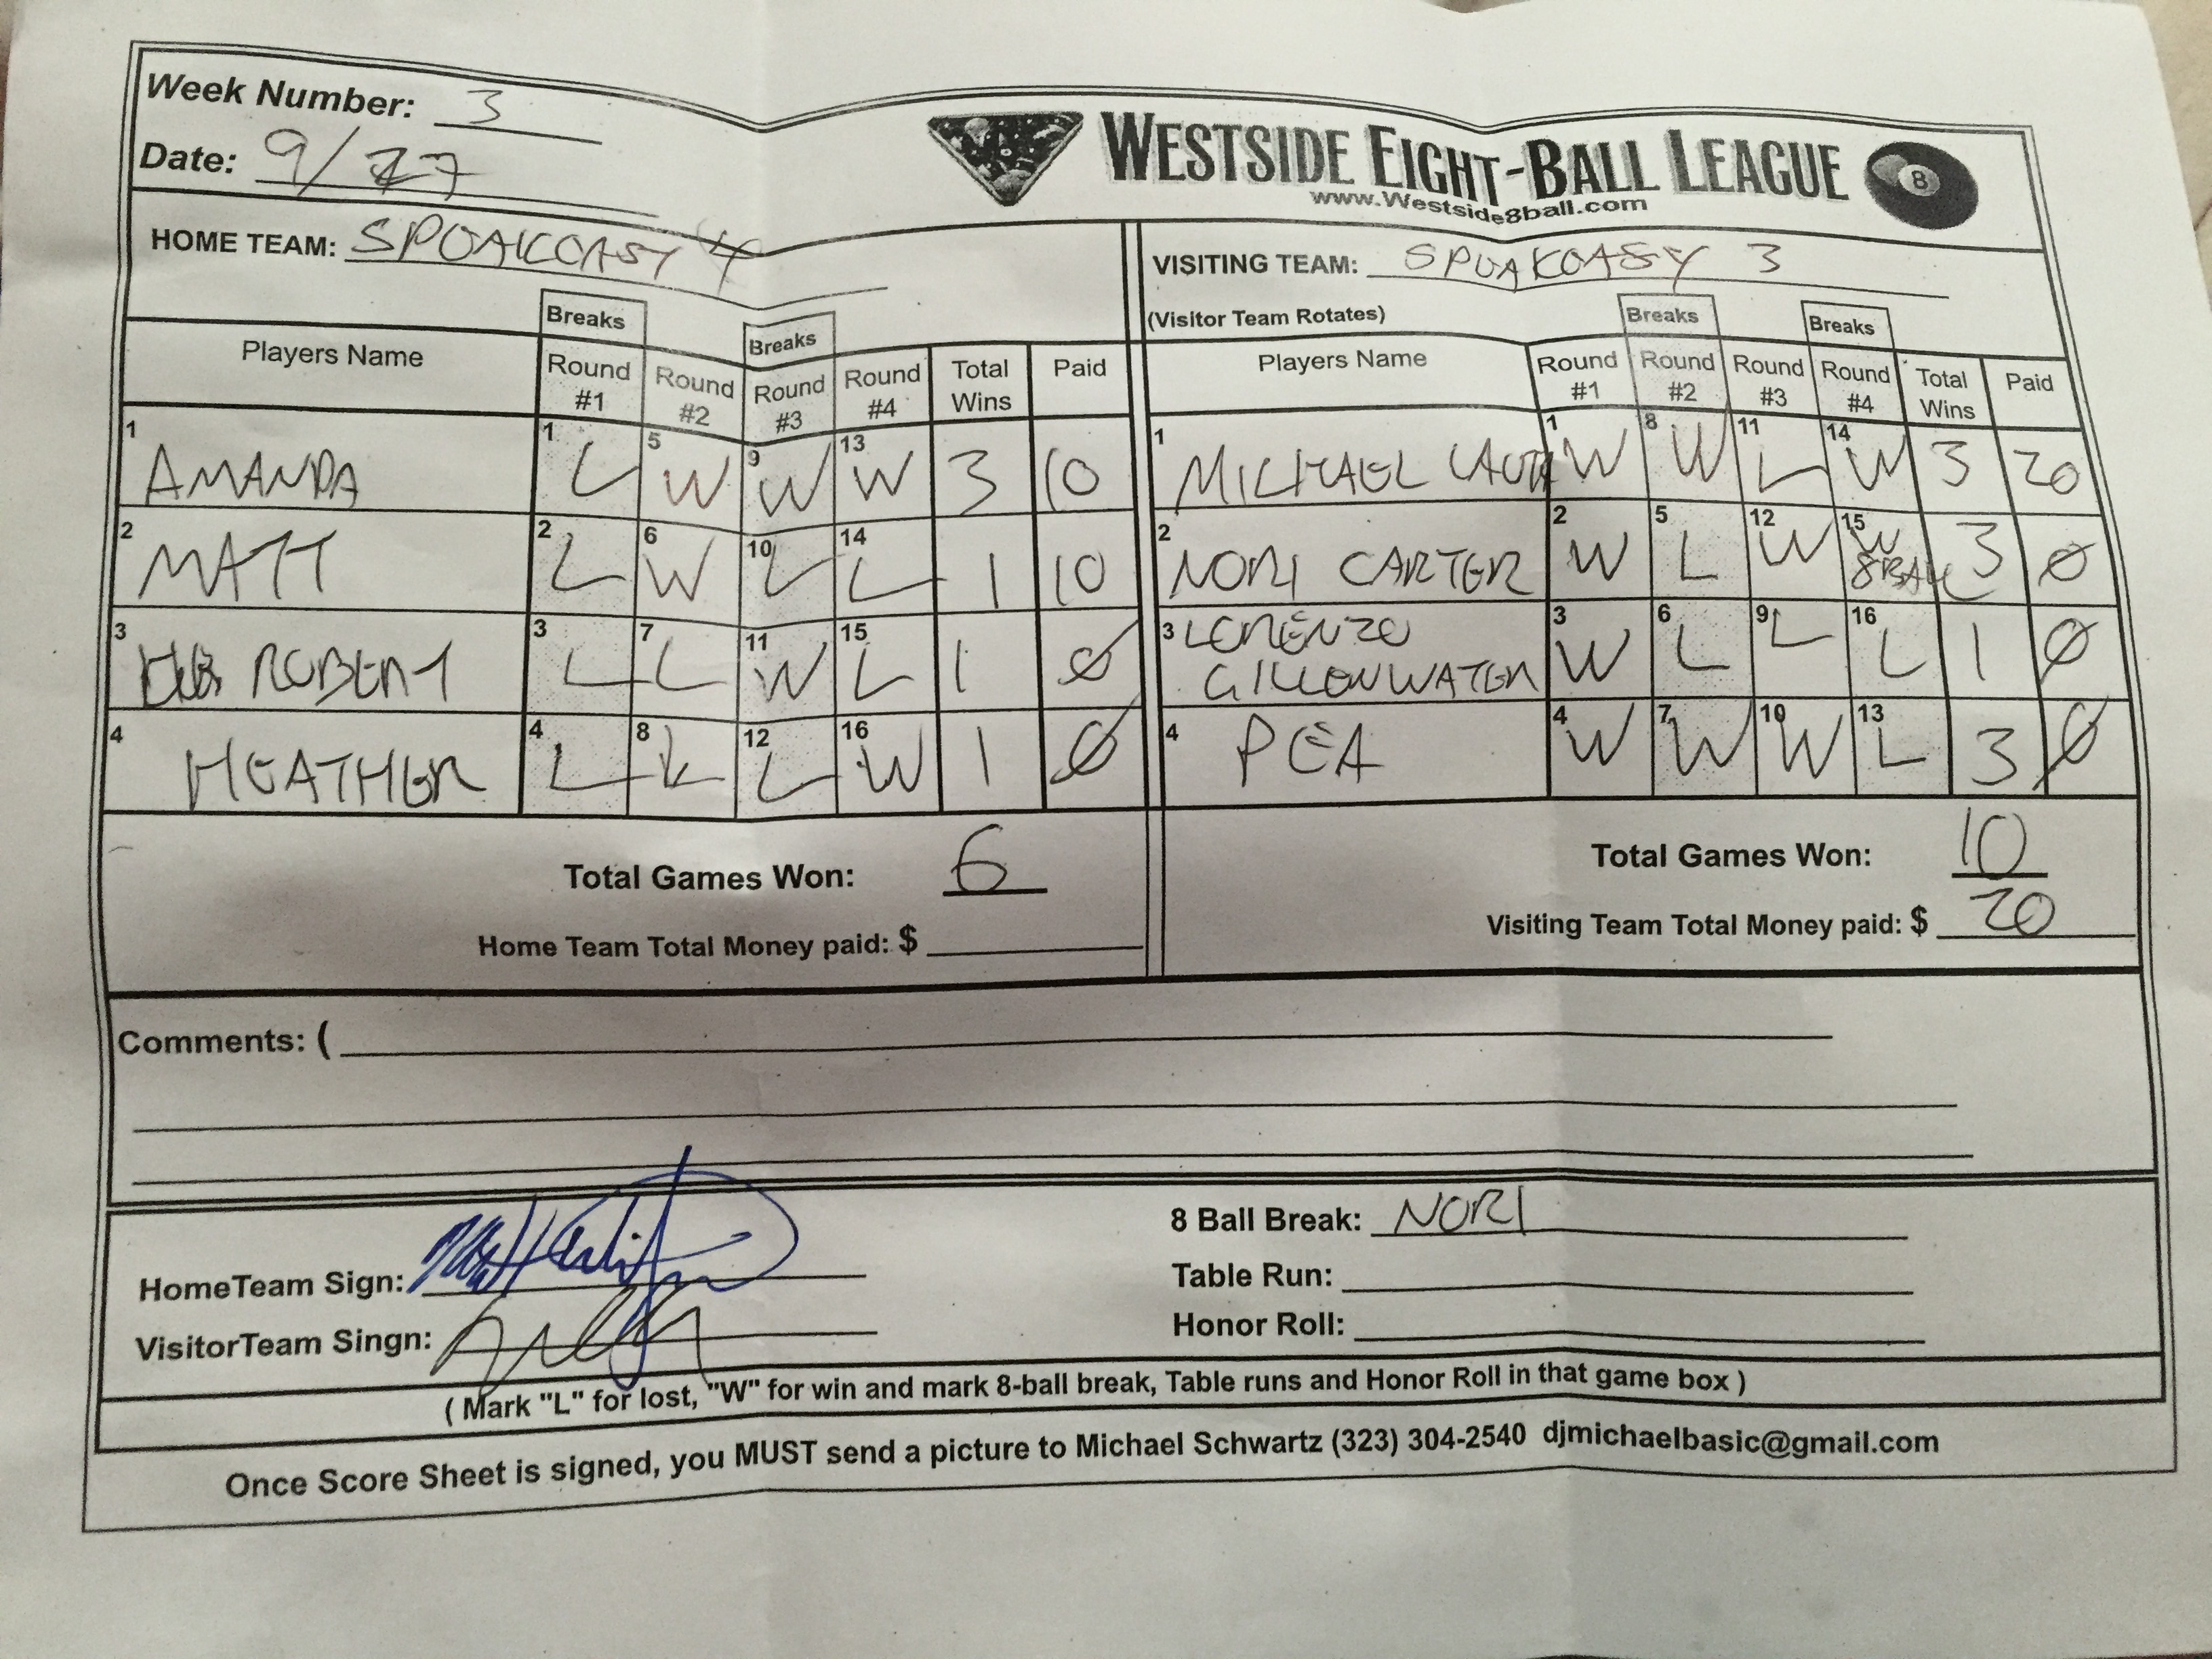 Week Number: 3
Date: 9/27
WESTSIDE EIGHT-BALL LEAGUE 8
www.Westside8ball.com
HOME TEAM: SPEAKEASY 4
VISITING TEAM: SPEAKEASY 3
(Visitor Team Rotates)
Breaks Breaks Breaks Breaks
Players Name Round #1 Round #2 Round #3 Round #4 Total Wins Paid Players Name Round #1 Round #2 Round #3 Round #4 Total Wins Paid
1 AMANDA 1 L 5 W 9 W 13 W 3 10 1 MICHAEL 1 W 8 W 11 L 14 W 3 20
2 MATT 2 L 6 W 10 L 14 L 1 10 2 NORI CARTER 2 W 5 L 12 W 15 W 8BALL 3 Ø
3 ROBERT 3 L 7 L 11 W 15 L 1 Ø 3 LORENZO GILLENWATER 3 W 6 L 9 L 16 L 1 Ø
4 HEATHER 4 L 8 L 12 L 16 W 1 Ø 4 PEA 4 W 7 W 10 W 13 L 3 Ø
Total Games Won: 6
Home Team Total Money paid: $
Total Games Won: 10
Visiting Team Total Money paid: $ 20
Comments: (
HomeTeam Sign:
VisitorTeam Singn:
8 Ball Break: NORI
Table Run:
Honor Roll:
( Mark "L" for lost, "W" for win and mark 8-ball break, Table runs and Honor Roll in that game box )
Once Score Sheet is signed, you MUST send a picture to Michael Schwartz (323) 304-2540 djmichaelbasic@gmail.com